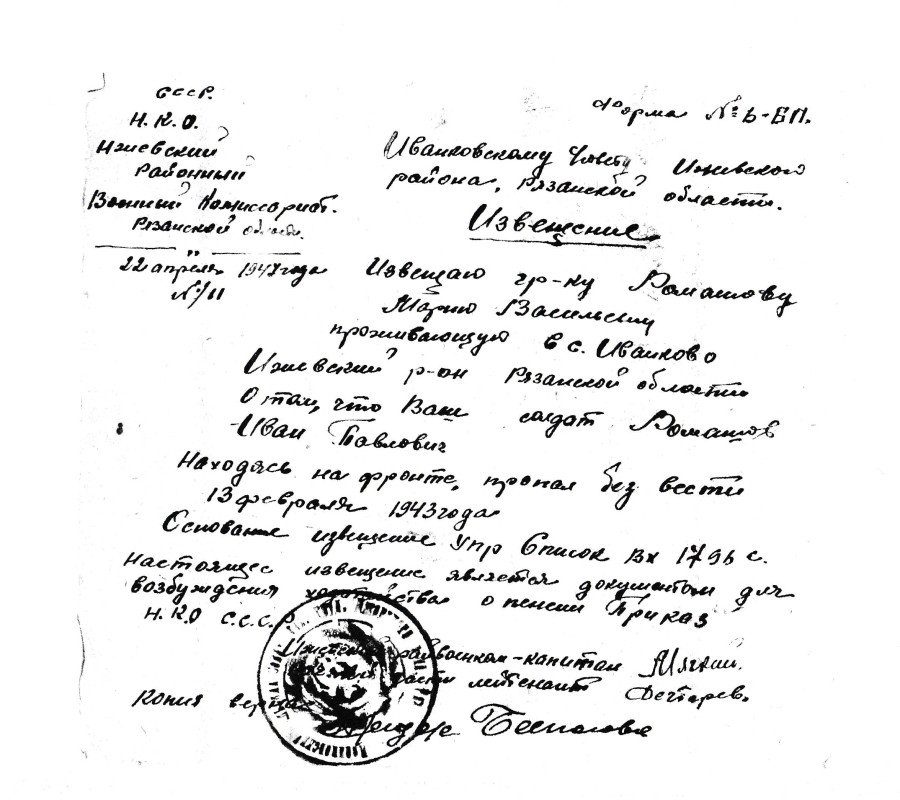 СССР.
Н.К.О.
Ижевский
Районный
Военный Комиссариат.
Рязанской области.
22 апреля 1947 года
№/11
Форма № 6-БП.
Иванковскому Ижевского
района, Рязанской области.
Извещение
Извещаю гр-ку Ромашову
Марию Васильевну
проживающую в с. Иванково
Ижевский р-он Рязанской области
О том, что Ваш солдат Ромашов
Иван Павлович
Находясь на фронте, пропал без вести
13 февраля 1943 года
Основание извещение Упр Список вх 1796 с.
Настоящее извещение является документом для
возбуждения ходатайства о пенсии Приказ
Н.К.О С.С.С.Р
райвоенком-капитан
части лейтенант Дегтярев.
Копия верна